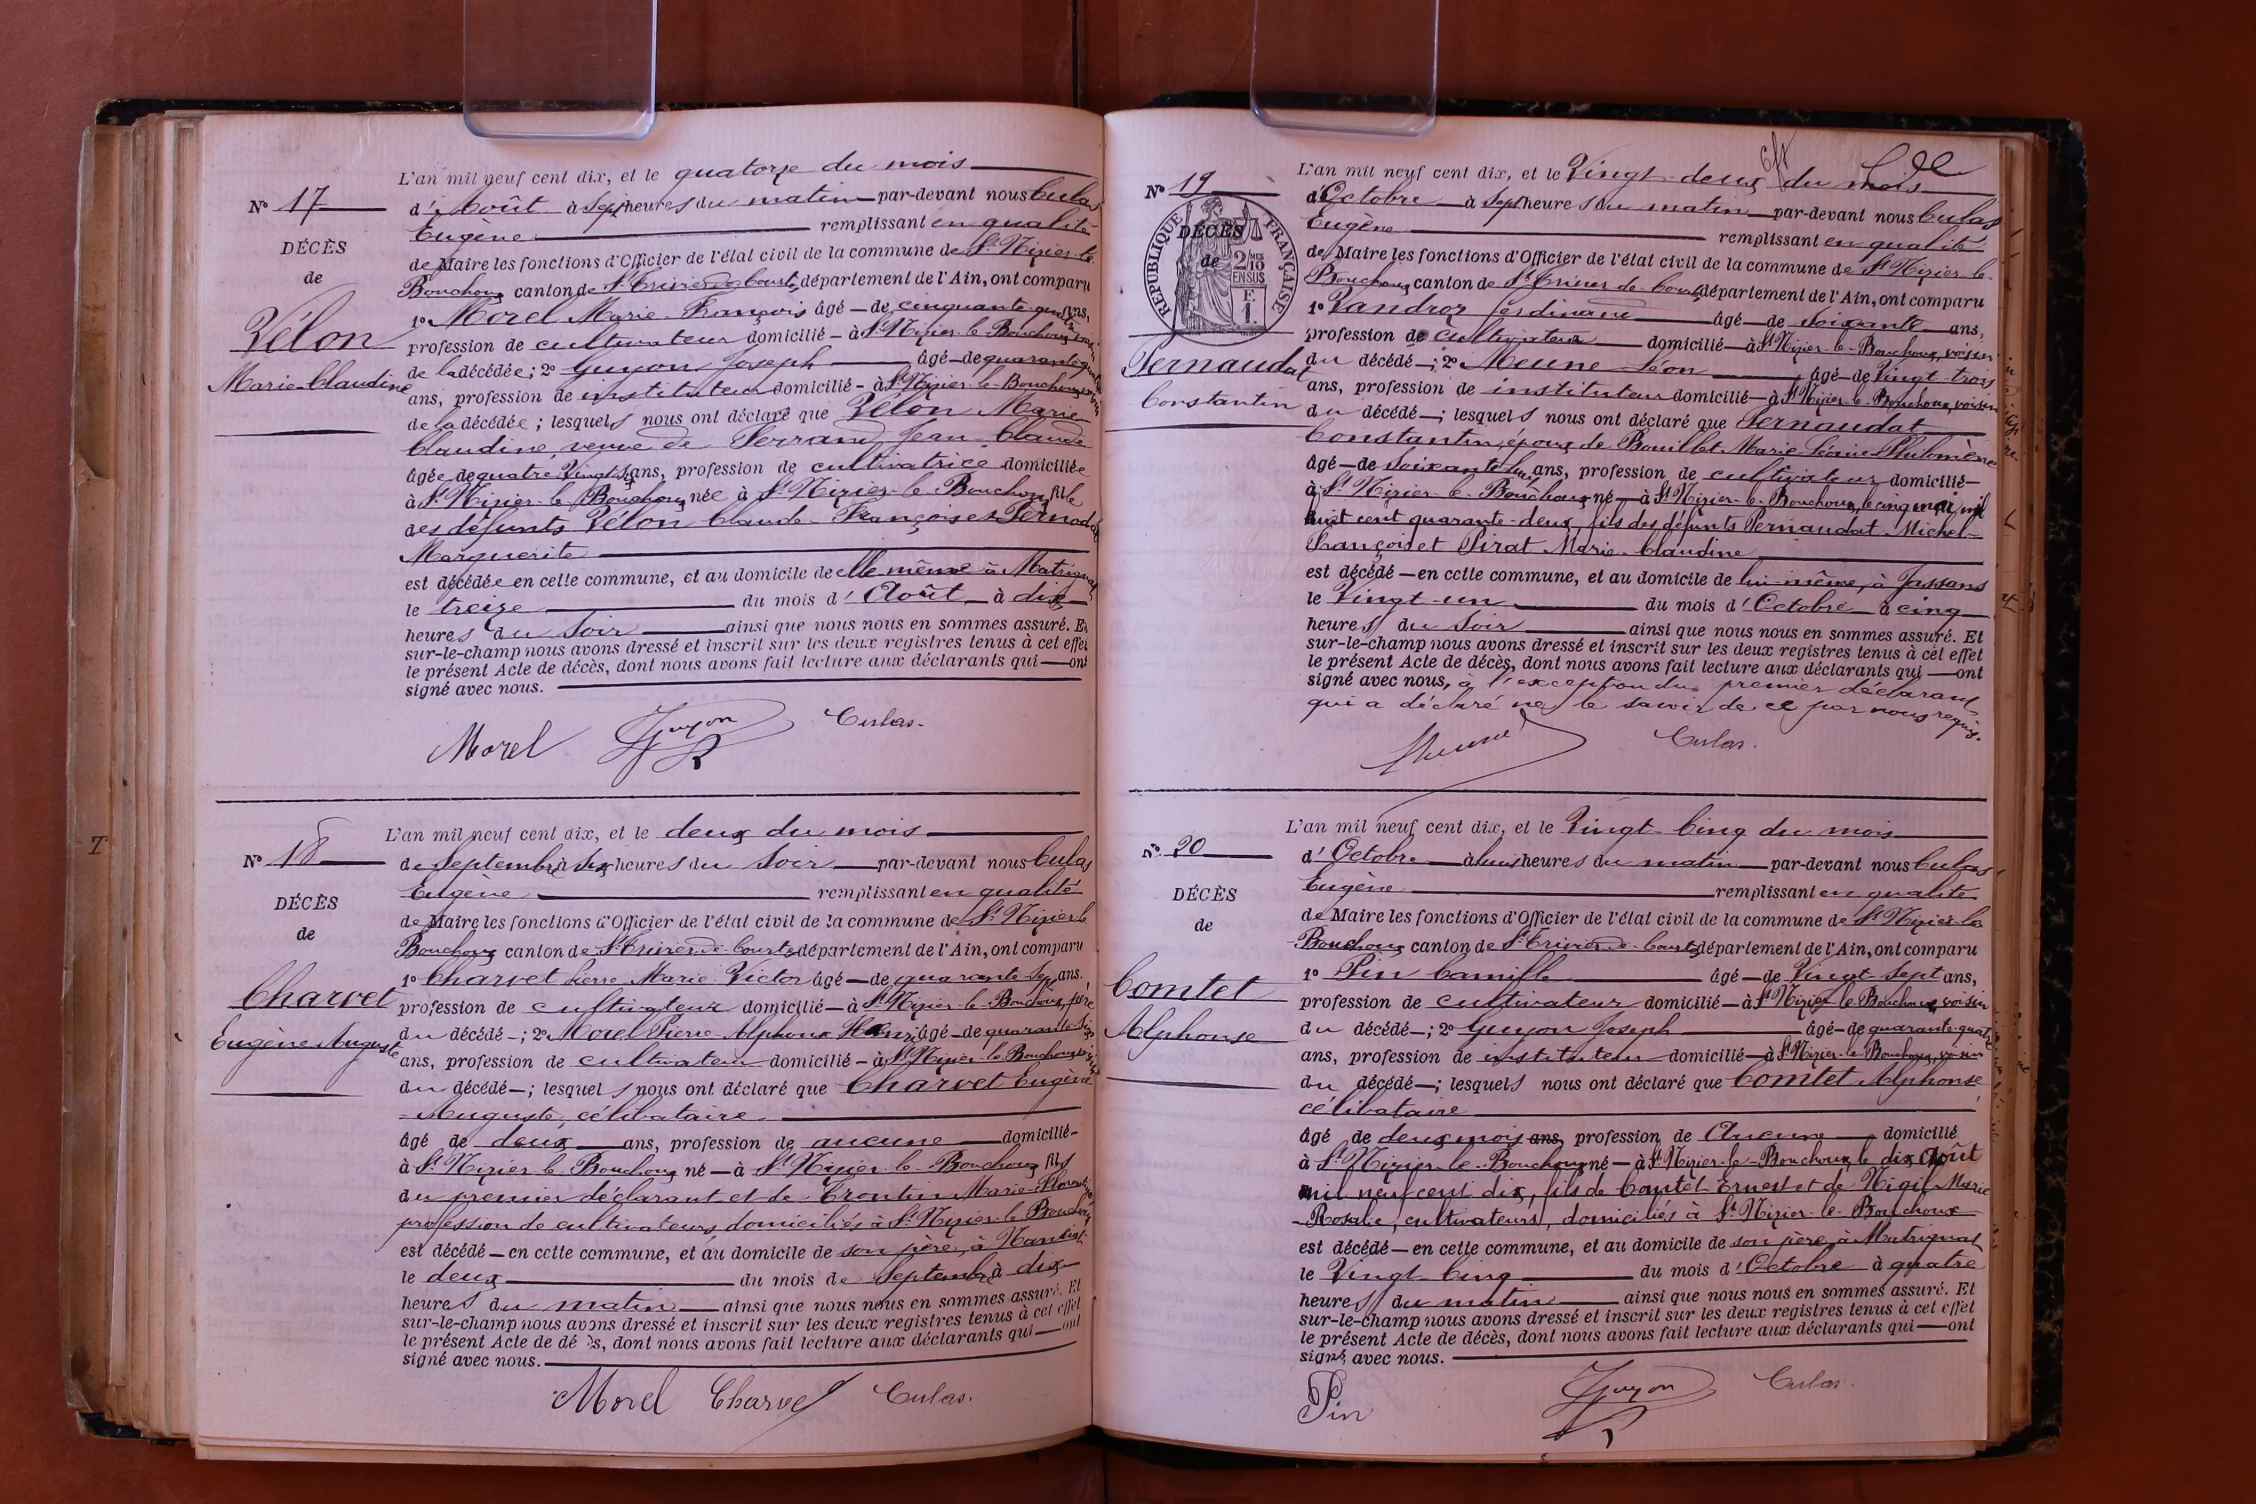 L'an mil neuf cent dix, et le quatorze du mois
N° 17
d'Août à sept heures du matin par-devant nous Culas
Eugène remplissant en qualité
DÉCÈS
de Maire les fonctions d'Officier de l'état civil de la commune de St Nizier-le-
de
Bouchoux canton de St Trivier de Courtes, département de l'Ain, ont comparu
1° Morel Marie François âgé de cinquante ans,
Vélon
profession de cultivateur domicilié à St Nizier-le-Bouchoux
de la décédée; 2° Guyon Joseph âgé de quarante
Marie-Claudine
ans, profession de instituteur domicilié à St Nizier-le-Bouchoux
de la décédée; lesquels nous ont déclaré que Vélon Marie
Claudine, veuve de Ferrand Jean Claude
âgée de quatre vingt ans, profession de cultivatrice domiciliée
à St Nizier-le-Bouchoux née à St Nizier-le-Bouchoux fille
des défunts Vélon Claude-François et
Marguerite
est décédée en cette commune, et au domicile de elle même à Matrignat
le treize du mois d'Août à dix
heures du soir ainsi que nous nous en sommes assuré. Et
sur-le-champ nous avons dressé et inscrit sur les deux registres tenus à cet effet
le présent Acte de décès, dont nous avons fait lecture aux déclarants qui ont
signé avec nous.
Morel Guyon Culas.
L'an mil neuf cent dix, et le deux du mois
N° 18
de Septembre à six heures du soir par-devant nous Culas
Eugène remplissant en qualité
DÉCÈS
de Maire les fonctions d'Officier de l'état civil de la commune de St Nizier-le
de
Bouchoux canton de St Trivier-de-Courtes département de l'Ain, ont comparu
1° Charvet Pierre Marie Victor âgé de quarante sept ans,
Charvet
profession de cultivateur domicilié à St Nizier-le-Bouchoux, père
du décédé; 2° Morel Pierre-Alphonse Henri âgé de quarante six
Eugène Auguste
ans, profession de cultivateur domicilié à St Nizier-le-Bouchoux
du décédé; lesquels nous ont déclaré que Charvet Eugène
Auguste, célibataire
âgé de deux ans, profession de aucune domicilié
à St Nizier-le-Bouchoux né à St Nizier-le-Bouchoux fils
du premier déclarant et de Trontin Marie
profession de cultivateurs, domiciliés à St Nizier-le-Bouchoux
est décédé en cette commune, et au domicile de son père, à
le deux du mois de Septembre à dix
heures du matin ainsi que nous nous en sommes assuré. Et
sur-le-champ nous avons dressé et inscrit sur les deux registres tenus à cet effet
le présent Acte de dé ès, dont nous avons fait lecture aux déclarants qui ont
signé avec nous.
Morel Charvet Culas.
L'an mil neuf cent dix, et le Vingt-deux du mois
N° 19
d'Octobre à sept heures du matin par-devant nous Culas
RÉPUBLIQUE FRANÇAISE
2/10 EN SUS
F. 1.
Eugène remplissant en qualité
DÉCÈS
de Maire les fonctions d'Officier de l'état civil de la commune de St Nizier-le-
de
Bouchoux canton de St Trivier-de-Courtes département de l'Ain, ont comparu
1° Vandroz Ferdinand âgé de soixante ans,
profession de cultivateur domicilié à St Nizier-le-Bouchoux, voisin
Pernaudat
du décédé; 2° Meune Léon âgé de Vingt-trois
Constantin
ans, profession de instituteur domicilié à St Nizier-le-Bouchoux, voisin
du décédé; lesquels nous ont déclaré que Pernaudat
Constantin, époux de Bouillet Marie Philomène
âgé de soixante huit ans, profession de cultivateur domicilié
à St Nizier-le-Bouchoux né à St Nizier-le-Bouchoux, le cinq mai mil
huit cent quarante-deux, fils des défunts Pernaudat Michel-
François et Pirat Marie-Claudine
est décédé en cette commune, et au domicile de lui-même, à Jassans
le Vingt-un du mois d'Octobre à cinq
heures du soir ainsi que nous nous en sommes assuré. Et
sur-le-champ nous avons dressé et inscrit sur les deux registres tenus à cet effet
le présent Acte de décès, dont nous avons fait lecture aux déclarants qui ont
signé avec nous, à l'exception du premier déclarant
qui a déclaré ne le savoir de ce par nous requis.
Meune Culas.
L'an mil neuf cent dix, et le Vingt-Cinq du mois
N° 20
d'Octobre à huit heures du matin par-devant nous Culas
Eugène remplissant en qualité
DÉCÈS
de Maire les fonctions d'Officier de l'état civil de la commune de St Nizier-le
de
Bouchoux canton de St Trivier-de-Courtes département de l'Ain, ont comparu
1° Pin Camille âgé de Vingt-sept ans,
Comtet
profession de cultivateur domicilié à St Nizier-le-Bouchoux, voisin
du décédé; 2° Guyon Joseph âgé de quarante-quatre
Alphonse
ans, profession de instituteur domicilié à St Nizier-le-Bouchoux, voisin
du décédé; lesquels nous ont déclaré que Comtet Alphonse
célibataire
âgé de deux mois ans, profession de Aucune domicilié
à St Nizier-le-Bouchoux né à St Nizier-le-Bouchoux le dix Août
mil neuf cent dix, fils de Comtet Ernest et de Marie
Rosalie, cultivateurs, domiciliés à St Nizier-le-Bouchoux
est décédé en cette commune, et au domicile de son père, à Matrignat
le Vingt-Cinq du mois d'Octobre à quatre
heures du matin ainsi que nous nous en sommes assuré. Et
sur-le-champ nous avons dressé et inscrit sur les deux registres tenus à cet effet
le présent Acte de décès, dont nous avons fait lecture aux déclarants qui ont
signé avec nous.
Pin Guyon Culas.